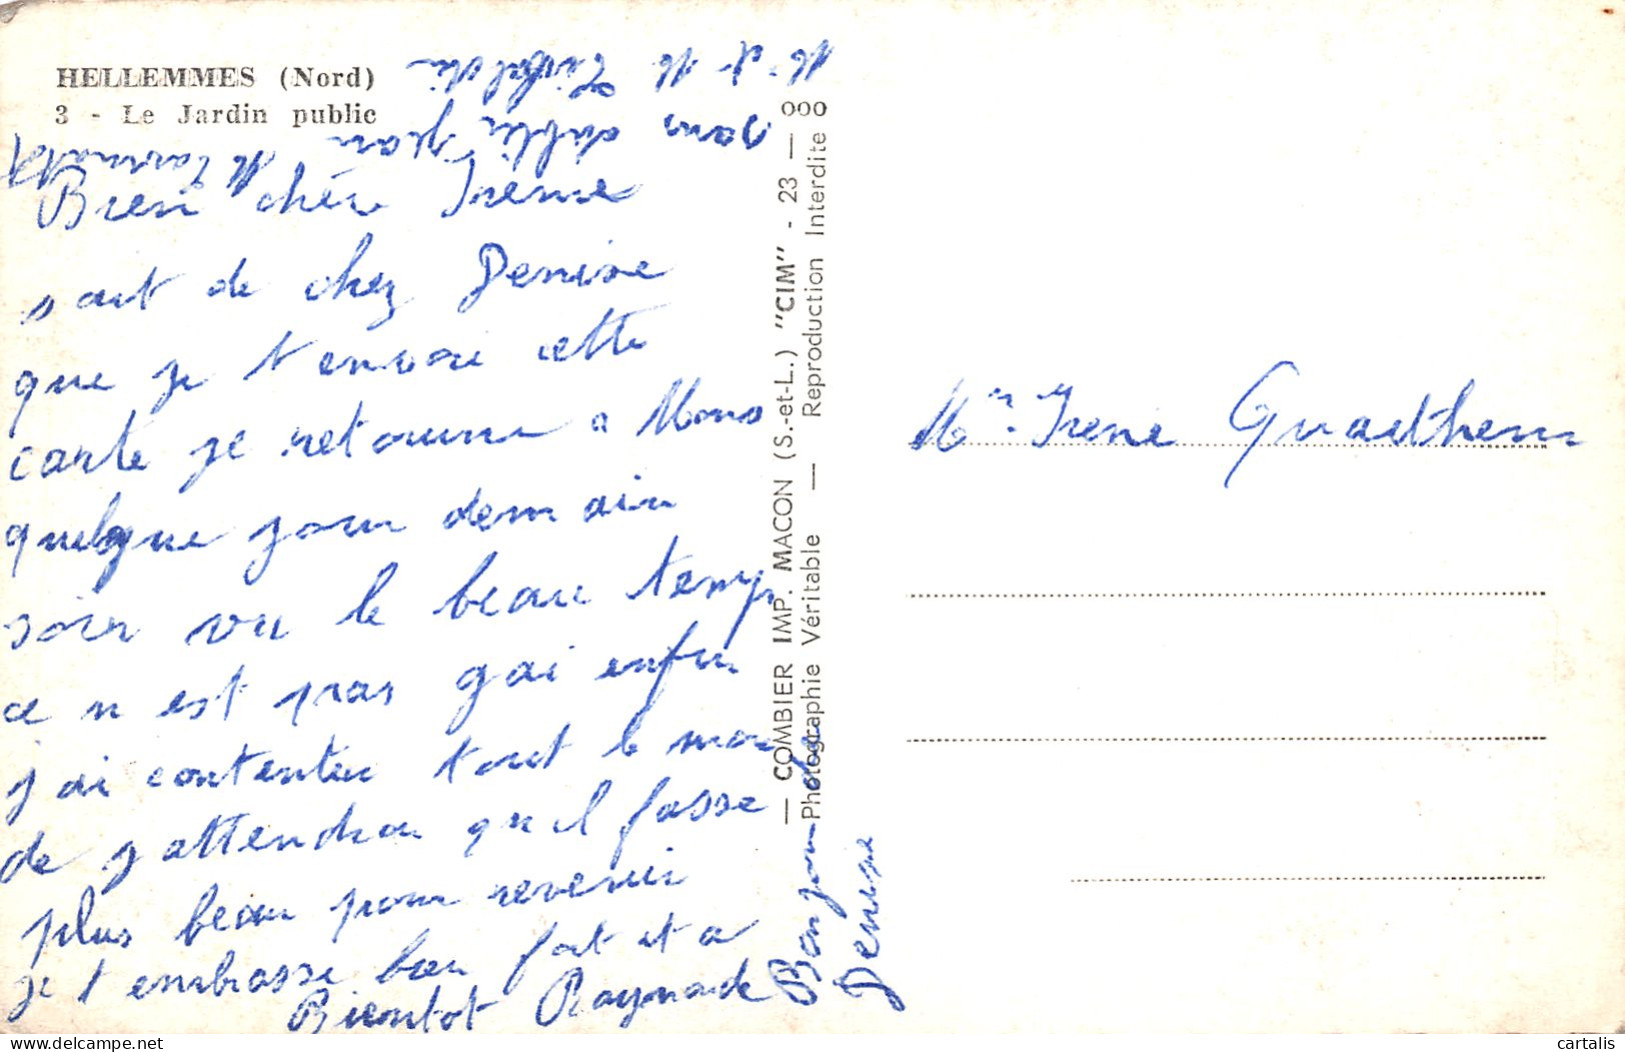 HELLEMMES (Nord)
3 - Le Jardin public
Bien chére Irene
s aut de chez Denise
que je t envoie cette
carte je retourne a Mons
quelque jour demain
soir vu le beau temps
ce n est pas gai enfin
j ai contenter tout le mon
de j attendrai qu il fasse
plus beau pour revenir
je t embrasse bien fort et a
Bientot Raymonde
Bonjour de
Denise
sans oublier jean
M et M
— COMBIER IMP. MACON (S.-et-L.) "CIM" - 23 — 000
Photographie Véritable — Reproduction Interdite
Irene
delcampe.net
cartalis